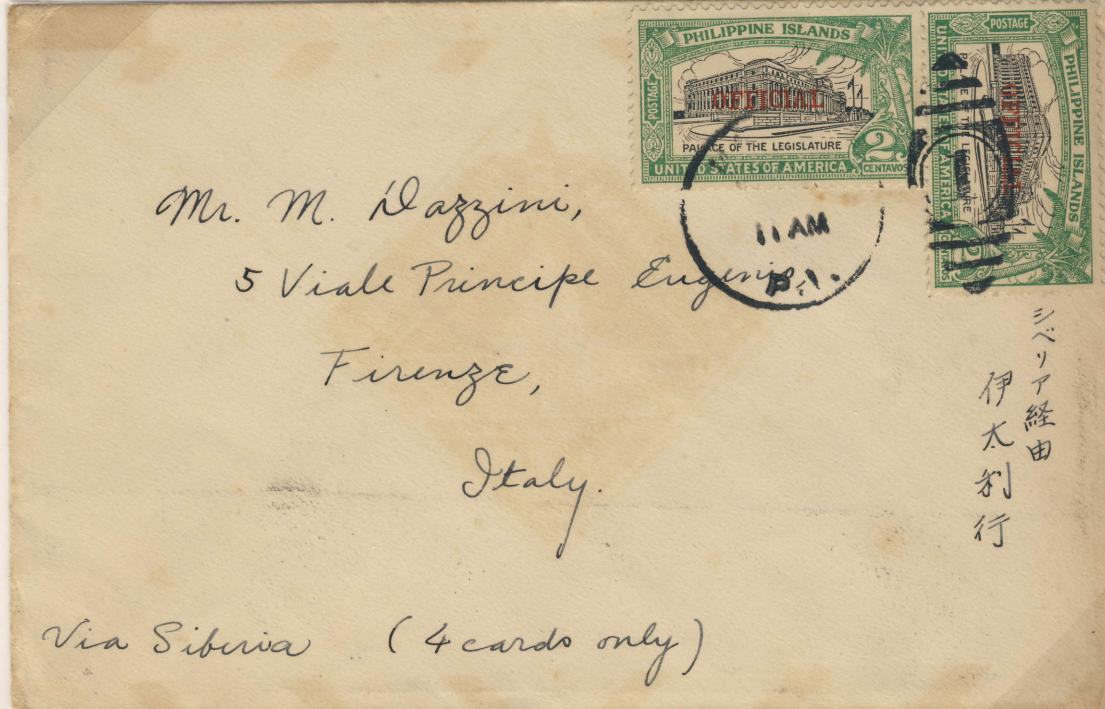 PHILIPPINE ISLANDS
POSTAGE
OFFICIAL
PALACE OF THE LEGISLATURE
UNITED STATES OF AMERICA
2
CENTAVOS
POSTAGE
PHILIPPINE ISLANDS
OFFICIAL
UNITED STATES OF AMERICA
2
11 AM
P.I.
Mr. M. Dazzini,
5 Viale Principe Eugenio
Firenze,
Italy.
シベリア経由
伊太利行
Via Siberia (4 cards only)